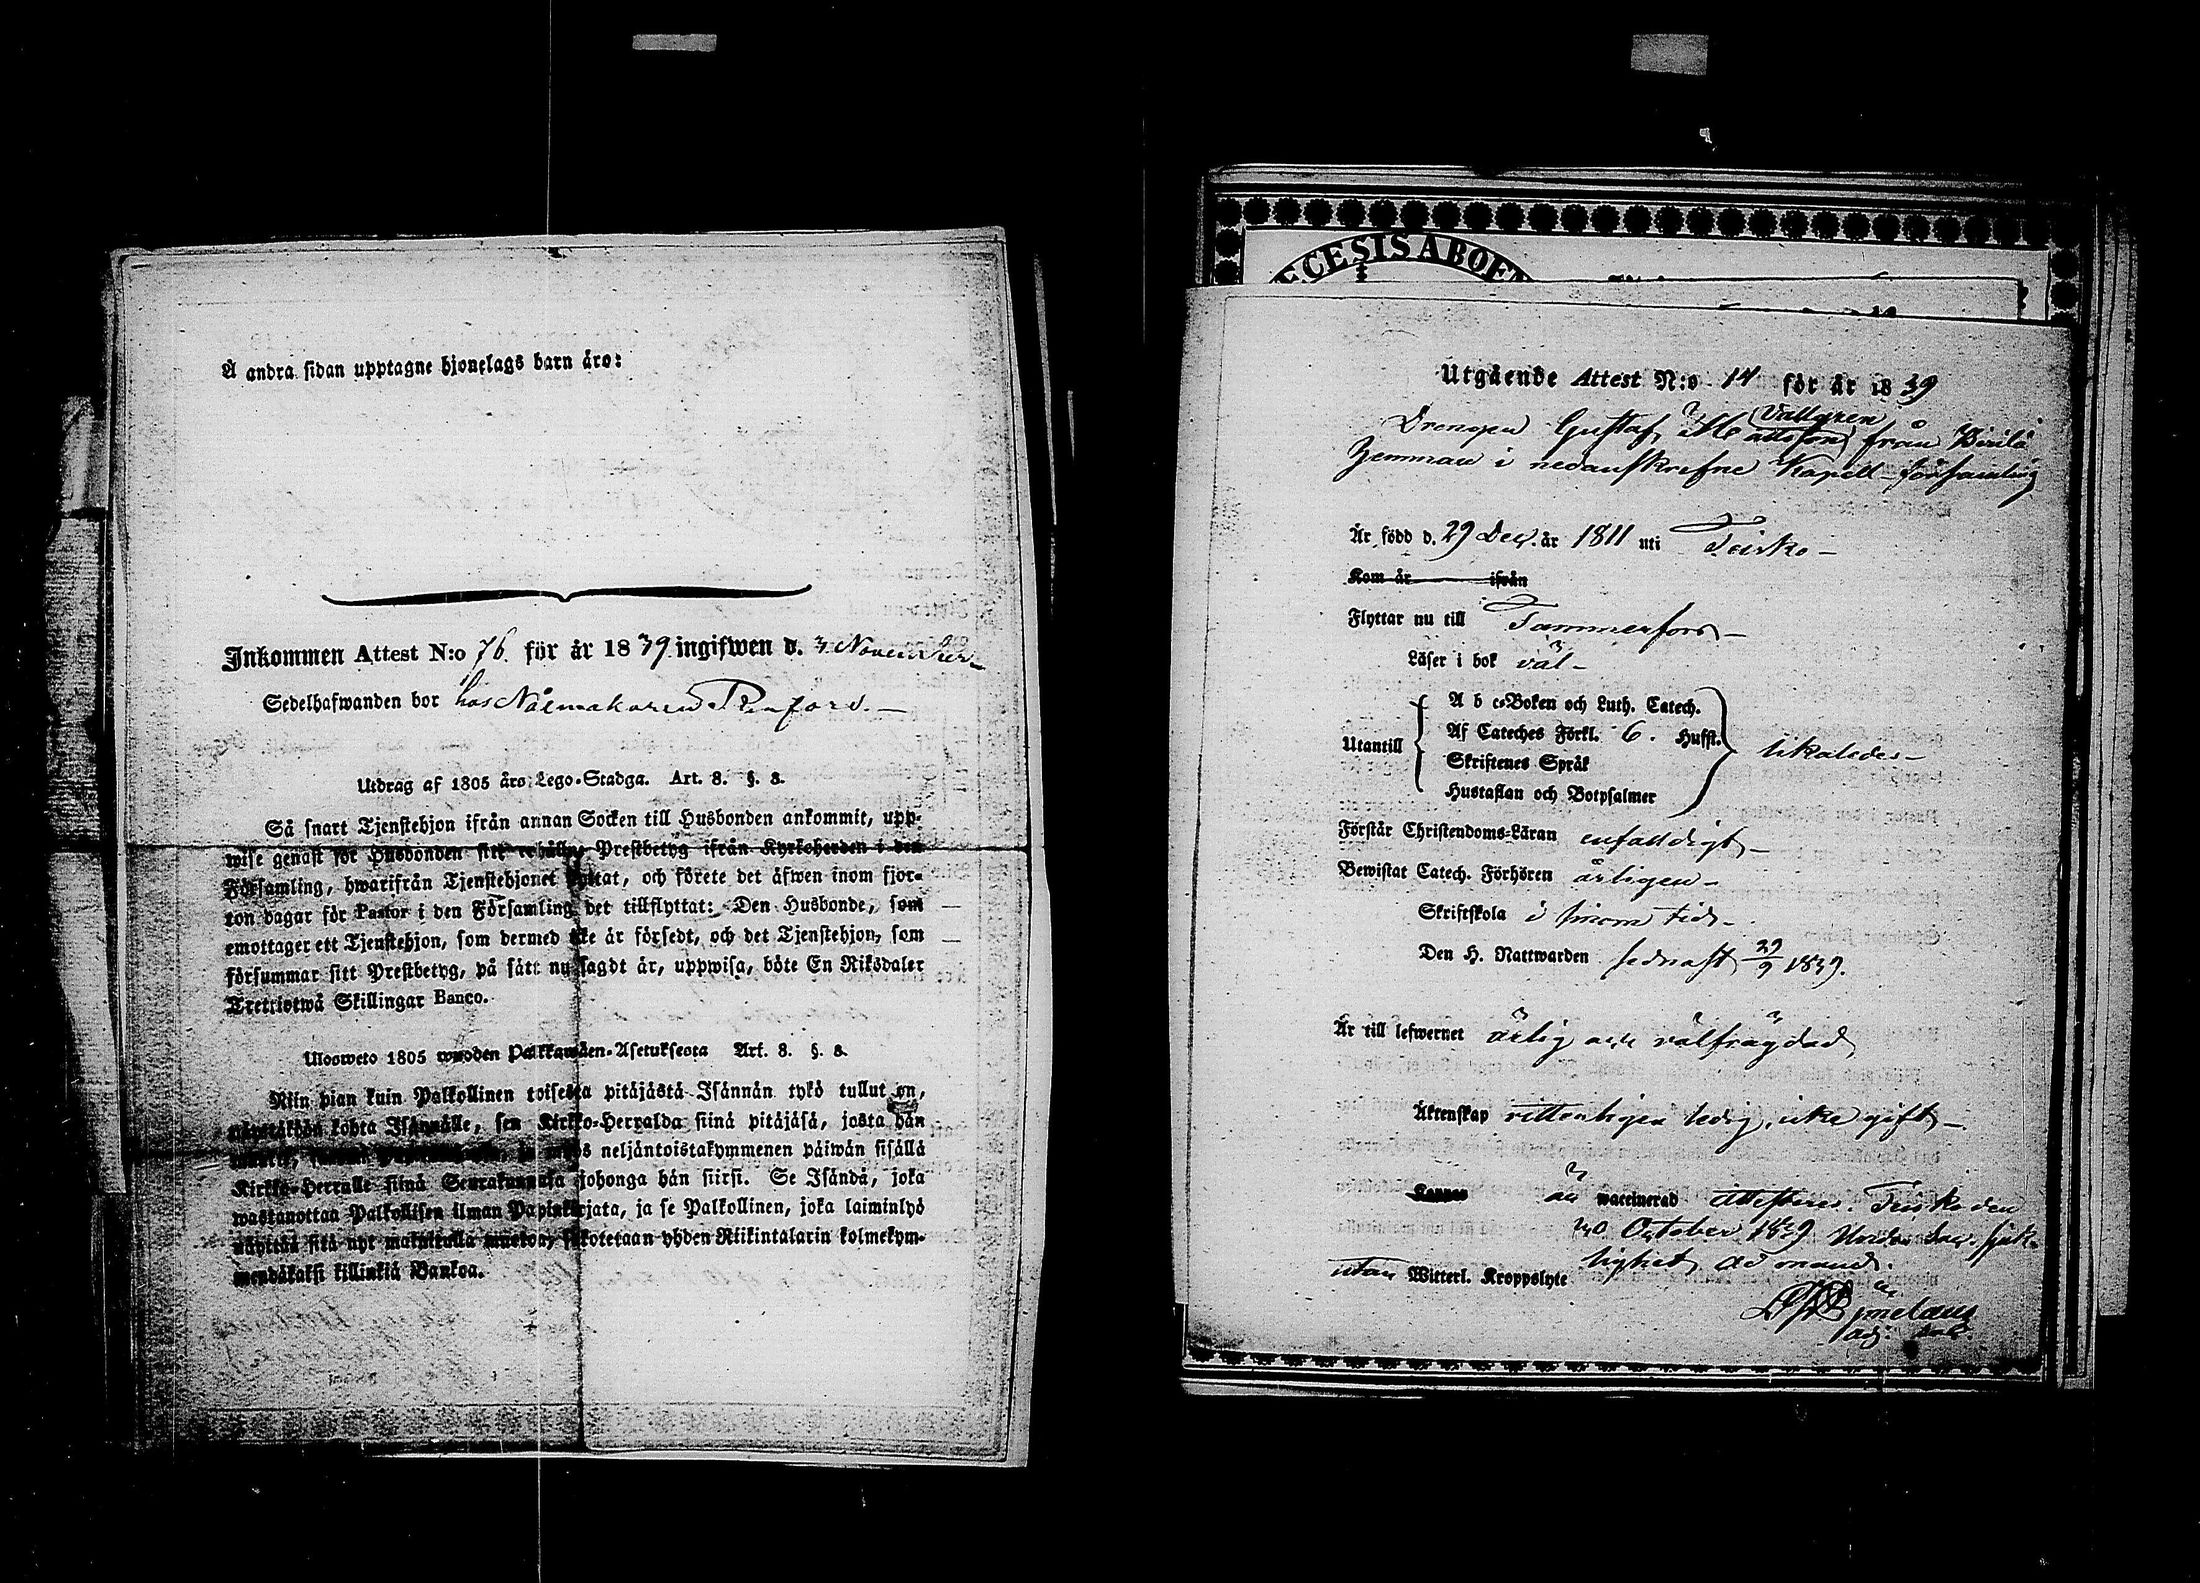 Å andra sidan upptagne hjonelags barn äro:
Inkommen Attest N:o 76. för år 1839 ingifwen d. 3 November
Sedelhafwanden bor hos Nålmakaren
Utdrag af 1805 års Lego-Stadga. Art. 8. §. 8.
Så snart Tjenstehjon ifrån annan Socken till Husbonden ankommit, upp-
wise genast för Husbonden sitt erhållne Prestbetyg ifrån Kyrkoherden i den
Församling, hwarifrån Tjenstehjonet flyttat, och förete det äfwen inom fjor-
ton dagar för Pastor i den Församling det tillflyttat: Den Husbonde, som
emottager ett Tjenstehjon, som dermed icke är försedt, och det Tjenstehjon, som
försummar sitt Prestbetyg, på sätt nu sagdt är, uppwisa, böte En Riksdaler
Trettiotwå Skillingar Banco.
Ulosweto 1805 wuoden Palkkawäen-Asetuksesta Art. 8. §. 8.
Niin pian kuin Palkollinen toisesta pitäjästä Isännän tykö tullut on,
näyttäkön kohta Isännälle, sen Kirkko-Herralda siinä pitäjäsä, josta hän
neljäntoistakymmenen päiwän sisällä
Kirkko-Herralle siinä Seurakunnasa johonga hän siirsi. Se Isändä, joka
wastanottaa Palkollisen ilman Papinkirjata, ja se Palkollinen, joka laiminlyö
näyttää sitä nyt mainitulla muoton, sakotetaan yhden Riikintalarin kolmekym-
mendäkaksi killinkiä Bankoa.
ECESIS ABOE
Utgående Attest N:o 14 för år 1839
Vallgren
Drengen Gustaf Mattsson från
Hemman i nedanskrefne Kapell-församling
Är född d. 29 Dec. år 1811 uti Teisko
Kom år ifrån
Flyttar nu till Tammerfors
Läser i bok väl
A b c-Boken och Luth. Catech.
Af Cateches Förkl. 6. Hufst.
Utantill likaledes
Skriftenes Språk
Hustaflan och Botpsalmer
Förstår Christendoms-Läran enfalldigt
Bewistat Catech. Förhören årligen
Skriftskola i sinom tid
Den H. Nattwarden sednast 29/9 1839.
Är till lefwernet ärlig och välfrägdad
Äktenskap vetterligen ledig, icke gift
Kappor är waccinerad Attesteras. Teisko den
30 October 1839 Under
utan Witterl. Kroppslyte lighet